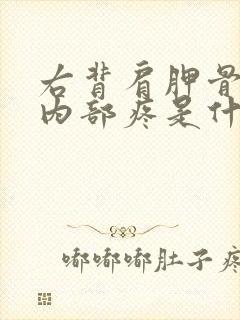 右背肩胛骨
内部疼是什
嘟嘟嘟肚子疼